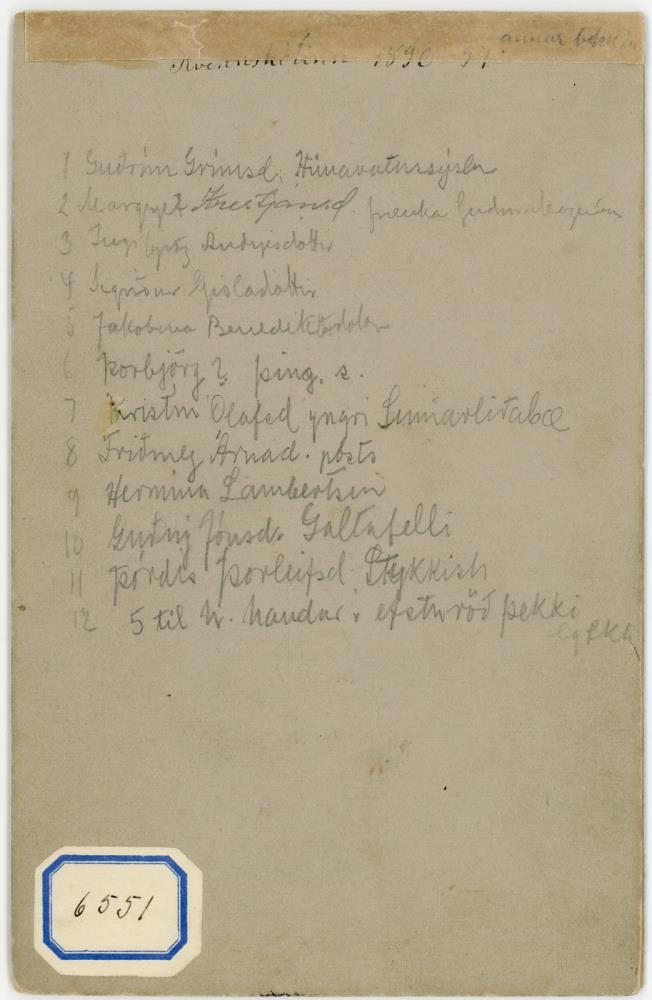 annar bekkur
Kvennskólinn 1896-97
1 Guðrún Grímsd. Húnavatnssýslu
2 Margrjet Kristjánsd. frænka
3 Ingibjörg
4 Sigríður Gísladóttir
5 Jakobina Benediktsdóttir
6 Þorbjörg ? þing. s.
7 Kristín Ólafsd yngri Sumarliðabæ
8 Friðmey Árnad. pósts
9 Hermina Lambertsen
10 Guðný Jónsd. Galtafelli
11 Þórdís Þorleifsd Stykkish
12 5 til h. handar í efsturöð þekki
eg ekki
6551